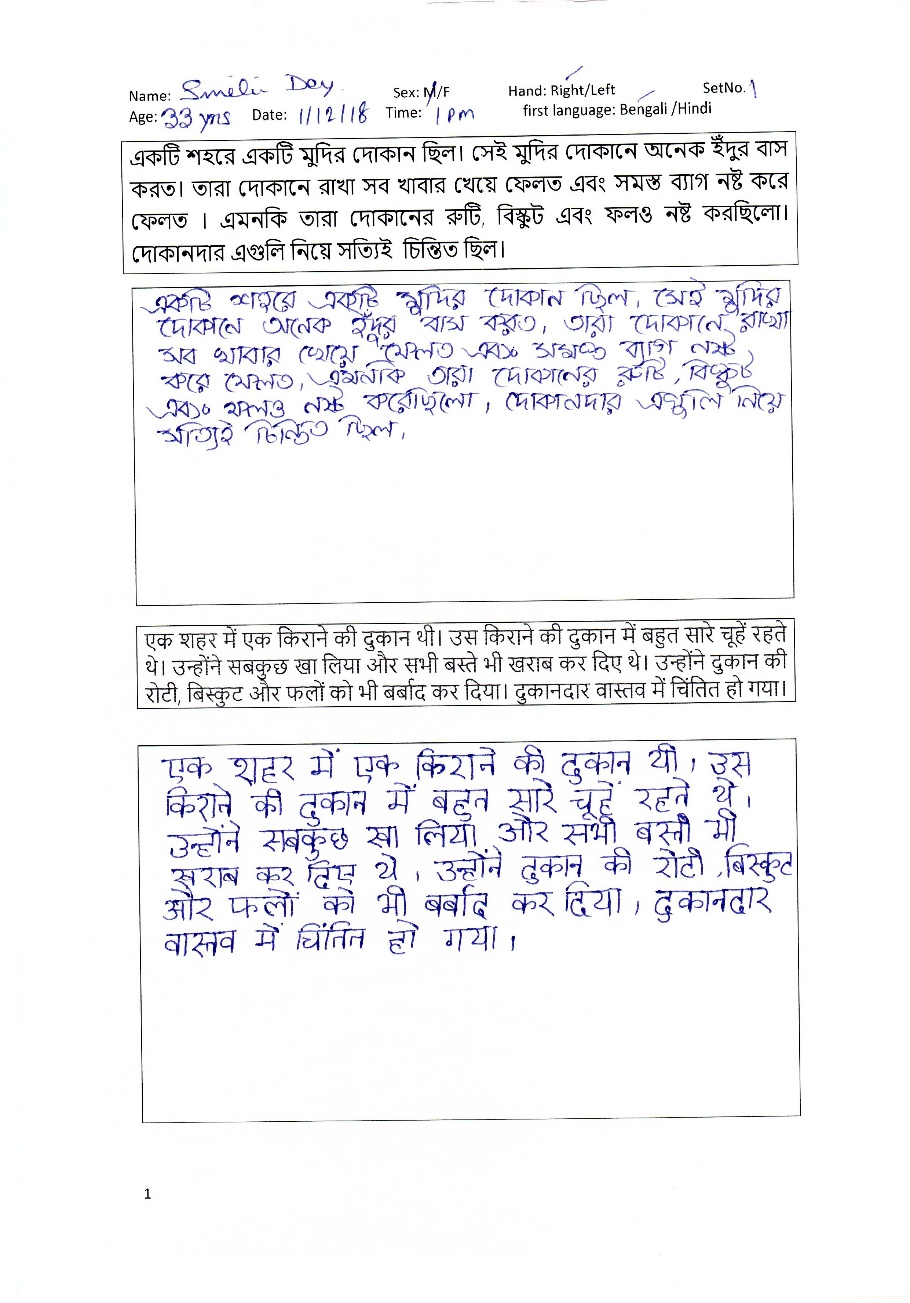 Name: Smeli Dey Sex: M/F Hand: Right/Left SetNo. 1
Age: 33 yrs Date: 1/12/18 Time: 1 pm first language: Bengali /Hindi
একটি শহরে একটি মুদির দোকান ছিল। সেই মুদির দোকানে অনেক ইঁদুর বাস
করত। তারা দোকানে রাখা সব খাবার খেয়ে ফেলত এবং সমস্ত ব্যাগ নষ্ট করে
ফেলত । এমনকি তারা দোকানের রুটি, বিস্কুট এবং ফলও নষ্ট করছিলো।
দোকানদার এগুলি নিয়ে সত্যিই চিন্তিত ছিল।
একটি শহরে একটি মুদির দোকান ছিল, সেই মুদির
দোকানে অনেক ইঁদুর বাস করত, তারা দোকানে রাখা
সব খাবার খেয়ে ফেলত এবং সমস্ত ব্যাগ নষ্ট
করে ফেলত, এমনকি তারা দোকানের রুটি, বিস্কুট
এবং ফলও নষ্ট করেছিলো, দোকানদার এগুলি নিয়ে
সত্যিই চিন্তিত ছিল,
एक शहर में एक किराने की दुकान थी। उस किराने की दुकान में बहुत सारे चूहें रहते
थे। उन्होंने सबकुछ खा लिया और सभी बस्ते भी खराब कर दिए थे। उन्होंने दुकान की
रोटी, बिस्कुट और फलों को भी बर्बाद कर दिया। दुकानदार वास्तव में चिंतित हो गया।
एक शहर में एक किराने की दुकान थी, उस
किराने की दुकान में बहुत सारे चूहें रहते थे,
उन्होंने सबकुछ खा लिया और सभी बस्ते भी
खराब कर दिए थे, उन्होंने दुकान की रोटी, बिस्कुट
और फलों को भी बर्बाद कर दिया, दुकानदार
वास्तव में चिंतित हो गया,
1